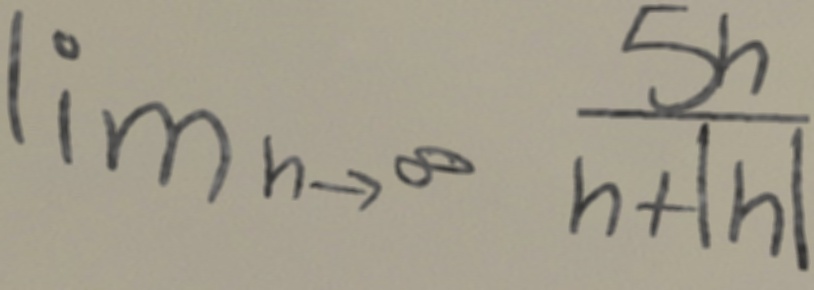 lim h→∞ 5h / h+|h|